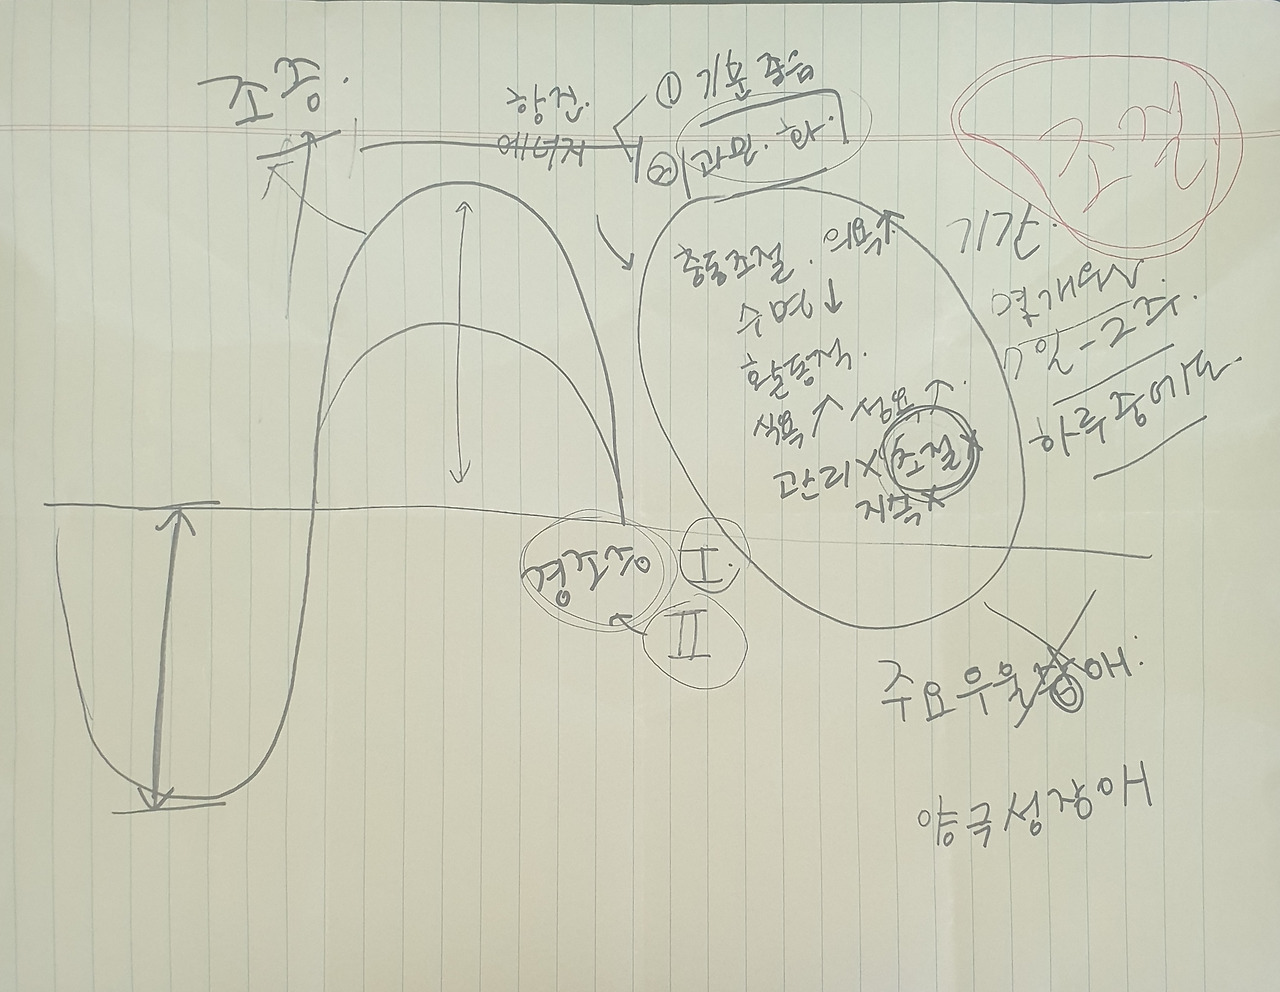 조증.
항진.
에너지
① 기분 좋음
② 과민. 화.
조절
충동조절. 의욕↑
수면↓
활동적.
식욕↑ 성욕↑.
관리X 조절X
지속X
기간.
몇개월.
7일-2주.
하루중에도.
경조증
I.
II
주요우울장애.
양극성장애